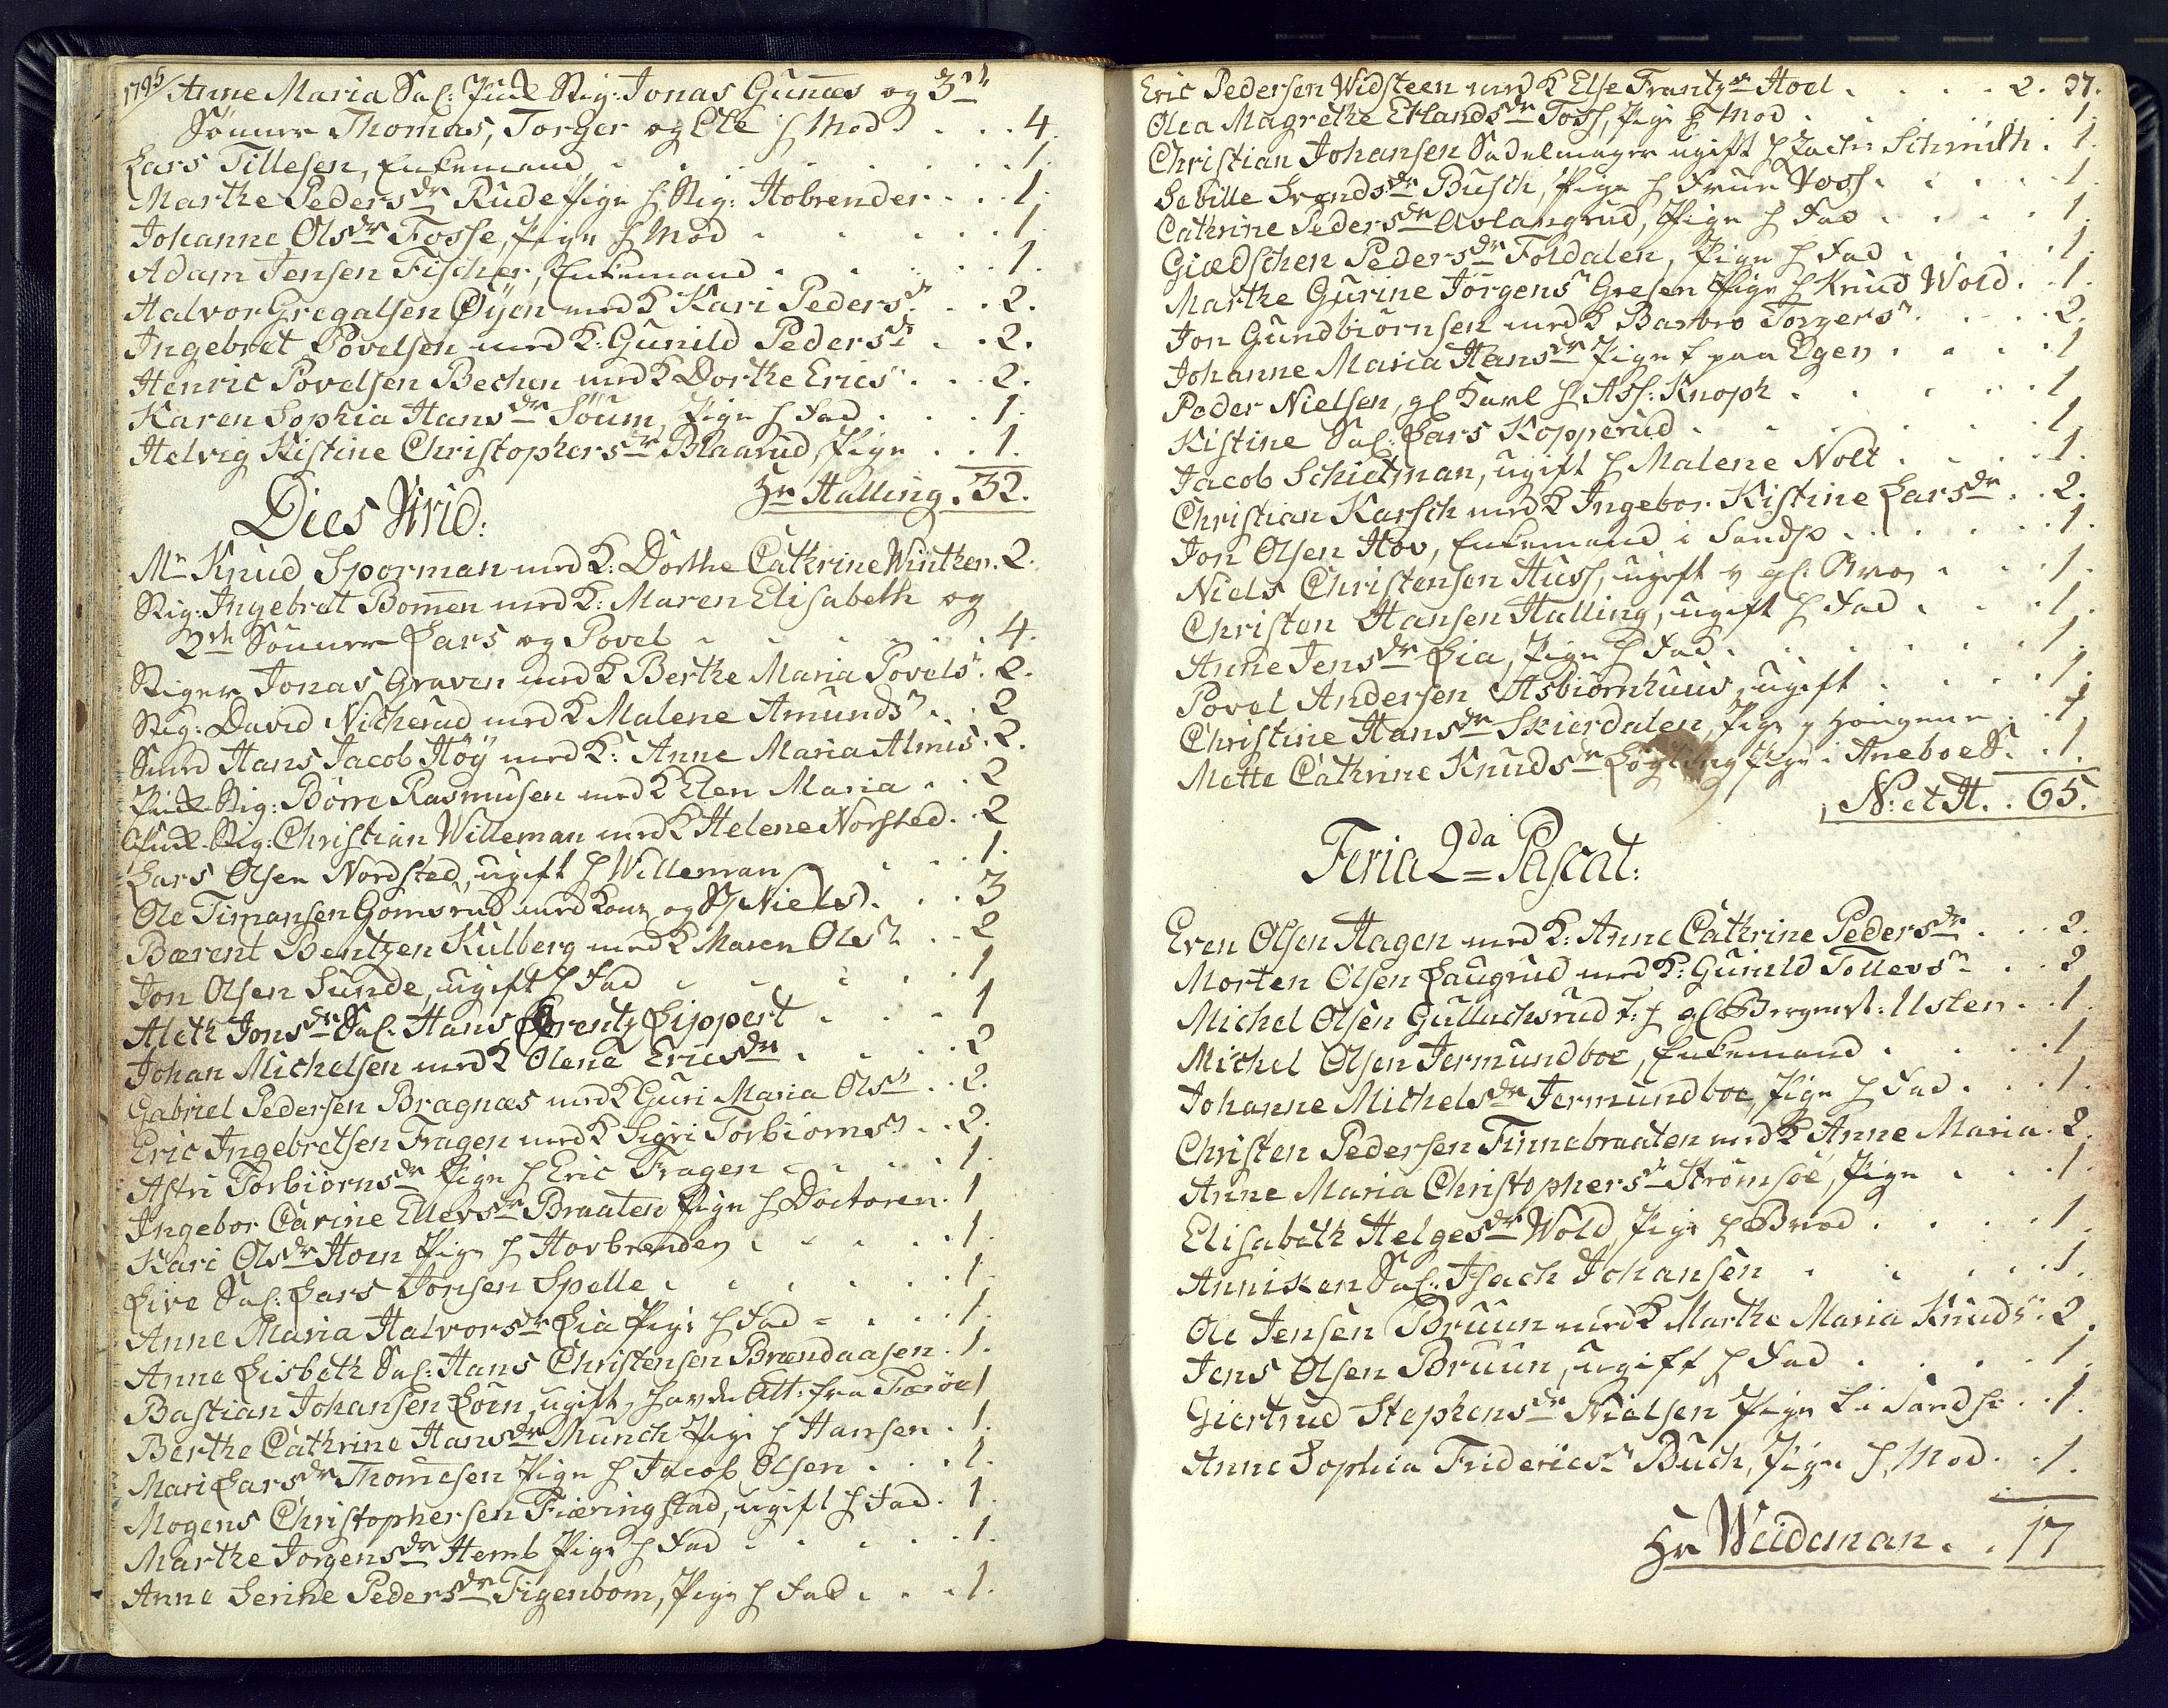 1795/ Anne Maria Sal: Puk Stig: Jonas Gunæs og 3de
Sønner Thomas, Torger og Ole h Mod . . . 4.
Lars Tillesen, Enkemand . . . . 1.
Marthe Pedersdr Rude Pige h Stig: Hobrender . . . 1.
Johanne Olsdr Fosse, Pige h Mod . . . 1.
Adam Jensen Fischer, Enkemand . . . 1.
Halvor Gregalsen Øÿen med K Kari Pedersdr . . 2.
Ingebret Povelsen med K: Gunild Pedersdr . . 2.
Henric Povelsen Bechen med K Dorthe Ericsdr . . 2.
Karen Sophia Hansdr Soum, Pige h Fad . . . 1.
Helvig Kistine Christophersdr Blaarud, Pige . . 1.
Hr Halling . 32.
Dies Virid:
Mr Knud Sporman med K: Dorthe Cathrine Winther . 2.
Stig: Ingebret Bomen med K: Maren Elisabeth og
2de Sønner Lars og Povel . . . 4.
Stiger Jonas Graven med K Berthe Maria Povelsdr . 2.
Stig: David Nicherud med K Malene Amundsdr . . 2
Smed Hans Jacob Höÿ med K: Anne Maria Almis . 2.
Puk Stig: Börre Rasmusen med K Elen Maria . . 2
Puk Stig: Christian Willeman med K Helene Norsted . . 2
Lars Olsen Nordsted, ugift h Willeman . . . 1.
Ole Timansen Gomsrud med Kone og S/ Niels . . . 3
Bærent Bentzen Kulberg med K Maren Olsdr . . 2
Jon Olsen Sunde, ugift h Fad . . . 1
Aleth Jonsdr Sal: Hans Lorentz Lippert . . . 1
Johan Michelsen med K Olene Ericsdr . . . 2
Gabriel Pedersen Bragnæs med K Guri Maria Olsdr . . 2.
Eric Ingebretsen Fragen med K Sigri Torbiørnsdr . . 2.
Astri Torbiørnsdr Pige h Eric Fragen . . . 1.
Ingebor Carine Ellersdr Braaten Pige h Doctoren . 1
Kari Olsdr Horn Pige h Hovbrenden . . . 1.
Live Sal: Lars Jonsen Spelle . . . 1.
Anne Maria Halvorsdr Lia Pige h Fad . . . 1.
Anne Lisbeth Sal: Hans Christensen Brændaasen . 1.
Bastian Johansen Loen, ugift, havde Att: fra Færöe 1
Berthe Cathrine Hansdr Munch Pige h Hansen . 1.
Mari Larsdr Thomesen Pige h Jacob Olsen . . . 1.
Mogens Christophersen Fiæringstad, ugift h Fad . 1.
Marthe Jorgensdr Hemb Pige h Fad . . . 1.
Anne Serine Pedersdr Figenbom, Pige h Fad . . . 1.
Eric Pedersen Widsteen med K Else Frantzdr Hoel . . . 2. 37.
Olea Magrethe Erlandsdr Foss, Pige h Mod . . . 1.
Christian Johansen Sadelmager ugift h Zacher Schmith . 1.
Sebille Svendsdr Busch, Pige h Frue Voss . . . 1.
Cathrine Pedersdr Aslangrud, Pige h Fad . . . 1.
Giædschen Pedersdr Foldalen, Pige h Fad . . . 1.
Marthe Gurine Jörgensdr Gresen Pige h Knud Wold . . 1.
Jon Gundbiørnsen med K Barbro Torgersdr . . . 2.
Johanne Maria Hansdr Pige f paa Egen . . . 1
Peder Nielsen, gl Karl h Ass: Knoph . . . 1
Kistine Sal: Lars Kopperud . . . 1
Jacob Schictman, ugift h Malene Nolt . . . 1.
Christian Karsch med K Ingebor Kistine Larsdr . . 2.
Jon Olsen Hov, Enkemand i Sandsv . . . 1.
Niels Christensen Huss, ugift gl: . . . 1.
Christen Hansen Halling, ugift h Fad . . . 1.
Anne Jensdr Lia, Pige h Fad . . . 1.
Povel Andersen Asbiørnhuus, ugift . . . 1.
Christine Hansdr Skierdalen, Pige . . 1.
Mette Cathrine Knudsdr Pige i Aneboe S: . . 1.
N: et H. . 65.
Feria 2da Pascat:
Even Olsen Hagen med K: Anne Cathrine Pedersdr . . . 2.
Morten Olsen Laugrud med K: Gunild Tollevsdr . . 2
Michel Olsen Gullachsrud f: h gl Bergmest: Usler . . 1.
Michel Olsen Jermundboe, Enkemand . . . 1.
Johanne Michelsdr Jermundboe, Pige h Fad . . . 1.
Christen Pedersen Finnebraaten med K Anne Maria . 2.
Anne Maria Christophersdr Strømsøe, Pige . . . 1.
Elisabeth Helgesdr Wold, Pige h Brod . . . 1.
Annisken Sal: Isach Johansen . . . 1.
Ole Jensen Bruun med K Marthe Maria Knudsdr . 2.
Jens Olsen Bruun, ugift h Fad . . . 1.
Giertrud Stephensdr Nielsen Pige f i Sandsv . . 1.
Anne Sophia Fridericsdr Buch, Pige h Mod . . 1.
Hr Weideman . . 17